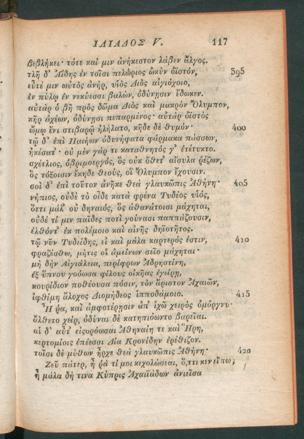 ΙΛΙΑΔΟΣ Ε. 117
βεβλήκει· τότε καί μιν ἀνήκεστον λάβεν ἄλγος.
τλῆ δ᾽ Ἀΐδης ἐν τοῖσι πελώριος ὠκὺν ὀϊστόν, 395
εὖτέ μιν ωὐτὸς ἀνήρ, υἱὸς Διὸς αἰγιόχοιο,
ἐν πύλῳ ἐν νεκύεσσι βαλών, ὀδύνῃσιν ἔδωκεν.
αὐτὰρ ὁ βῆ πρὸς δῶμα Διὸς καὶ μακρὸν Ὄλυμπον,
κῆρ ἀχέων, ὀδύνῃσι πεπαρμένος· αὐτὰρ ὀϊστὸς
ὤμῳ ἔνι στιβαρῷ ἠλήλατο, κῆδε δὲ θυμόν· 400
τῷ δ᾽ ἐπὶ Παιήων ὀδυνήφατα φάρμακα πάσσων,
ἠκέσατ᾽· οὐ μὲν γάρ τι καταθνητός γ᾽ ἐτέτυκτο.
σχέτλιος, ὀβριμοεργός, ὃς οὐκ ὄθετ᾽ αἴσυλα ῥέζων,
ὃς τόξοισιν ἔκηδε θεούς, οἳ Ὄλυμπον ἔχουσιν.
σοὶ δ᾽ ἐπὶ τοῦτον ἀνῆκε θεὰ γλαυκῶπις Ἀθήνη· 405
νήπιος, οὐδὲ τὸ οἶδε κατὰ φρένα Τυδέος υἱός,
ὅττι μάλ᾽ οὐ δηναιός, ὃς ἀθανάτοισι μάχηται,
οὐδέ τί μιν παῖδες ποτὶ γούνασι παππάζουσιν,
ἐλθόντ᾽ ἐκ πολέμοιο καὶ αἰνῆς δηϊοτῆτος.
τῷ νῦν Τυδείδης, εἰ καὶ μάλα καρτερός ἐστιν, 410
φραζέσθω, μήτις οἱ ἀμείνων σεῖο μάχηται·
μὴ δὴν Αἰγιάλεια, περίφρων Ἀδρηστίνη,
ἐξ ὕπνου γοόωσα φίλους οἰκῆας ἐγείρῃ,
κουρίδιον ποθέουσα πόσιν, τὸν ἄριστον Ἀχαιῶν,
ἰφθίμη ἄλοχος Διομήδεος ἱπποδάμοιο. 415
Ἦ ῥα, καὶ ἀμφοτέρῃσιν ἀπ᾽ ἰχῶ χειρὸς ὀμόργνυ·
ἄλθετο χείρ, ὀδύναι δὲ κατηπιόωντο βαρεῖαι.
αἱ δ᾽ αὖτ᾽ εἰσορόωσαι Ἀθηναίη τε καὶ Ἥρη,
κερτομίοις ἐπέεσσι Δία Κρονίδην ἐρέθιζον.
τοῖσι δὲ μύθων ἦρχε θεὰ γλαυκῶπις Ἀθήνη· 420
Ζεῦ πάτερ, ἦ ῥά τί μοι κεχολώσεαι, ὅ,ττι κεν εἴπω;
ἦ μάλα δή τινα Κύπρις Ἀχαιϊάδων ἀνιεῖσα